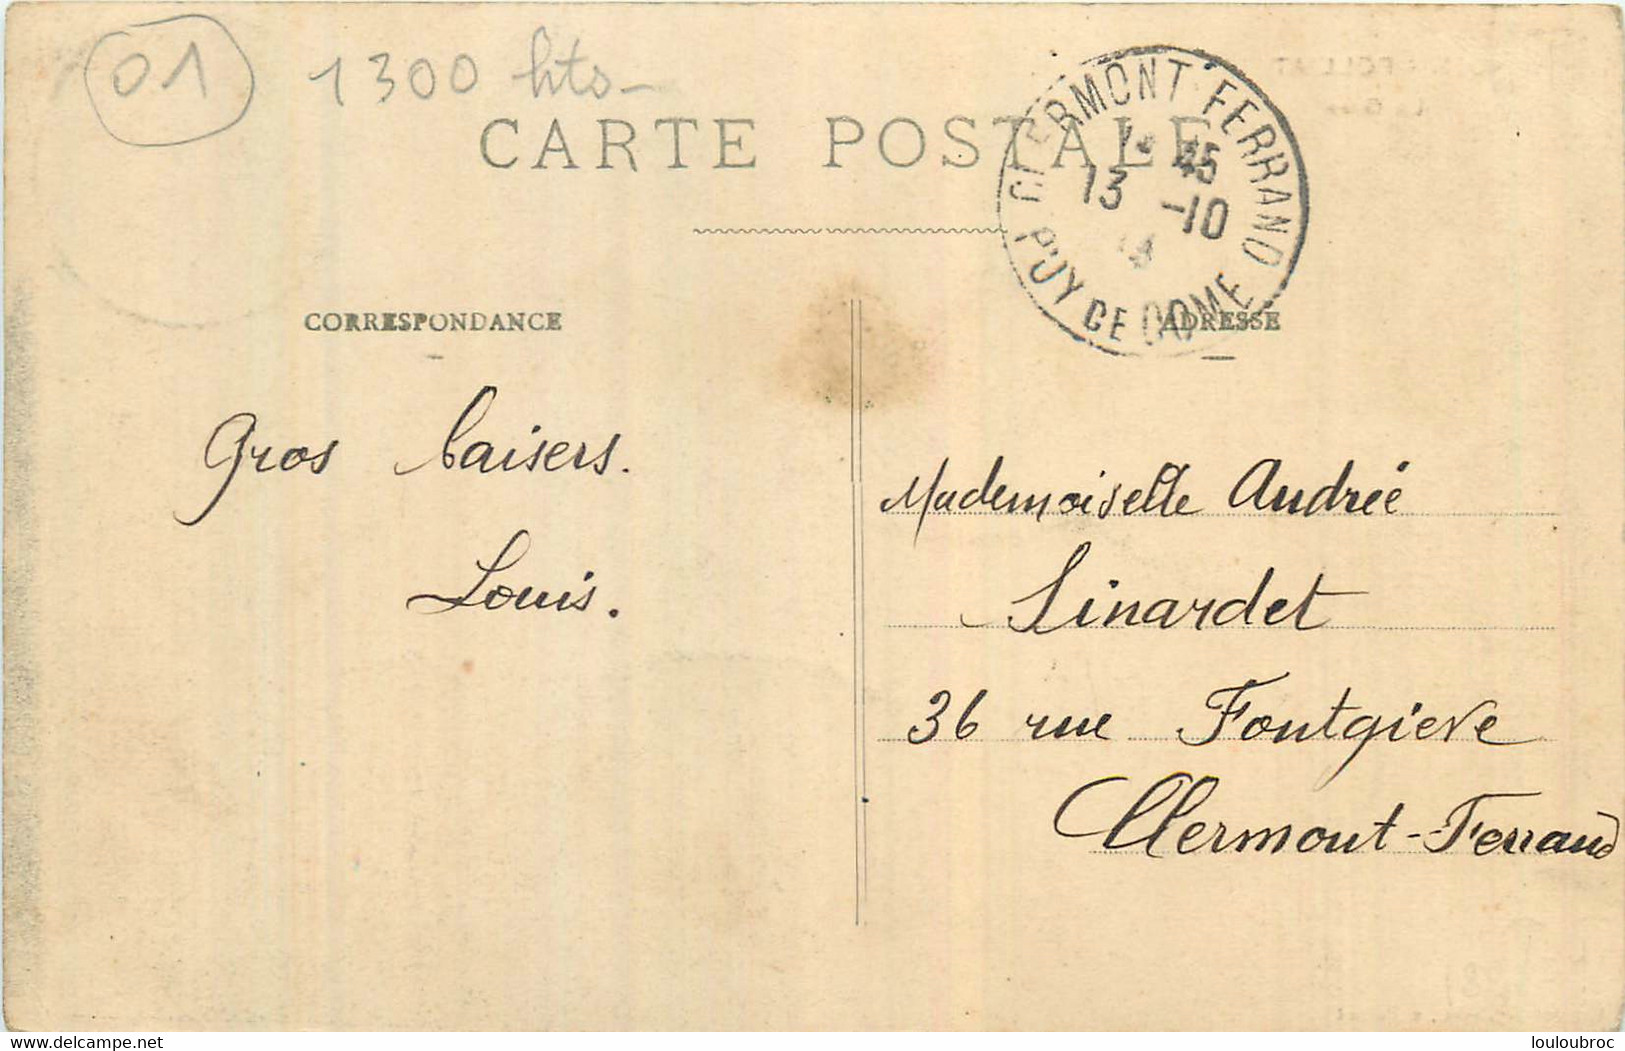 01
1300 hts
CARTE POSTALE
CLERMONT FERRAND
45
13 -10
PUY DE DOME
CORRESPONDANCE
ADRESSE
Gros baisers.
Louis.
Mademoiselle Andrée
Linardet
36 rue Fontgieve
Clermont-Ferrand
Delcampe.net
louloubroc